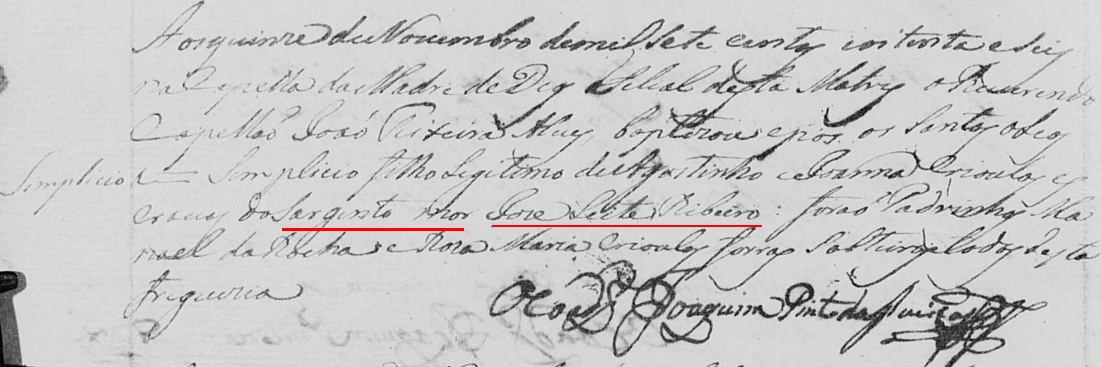 Aos quinze de Novembro de mil Sete centos oitenta e seis
na Capella da Madre de Deos filial desta Matriz o Reverendo
Capellão João Alvz baptizou e pos os Santos oleos
Simplicio a Simplicio filho Legitimo de Agostinho e Joanna Crioulos es
cravos do Sargento mor Joze Leite Ribeiro : forão Padrinhos Ma
noel da Rocha e Roza Maria Crioulos forros Solteiros todos desta
freguezia
O Joaquim Pinto da